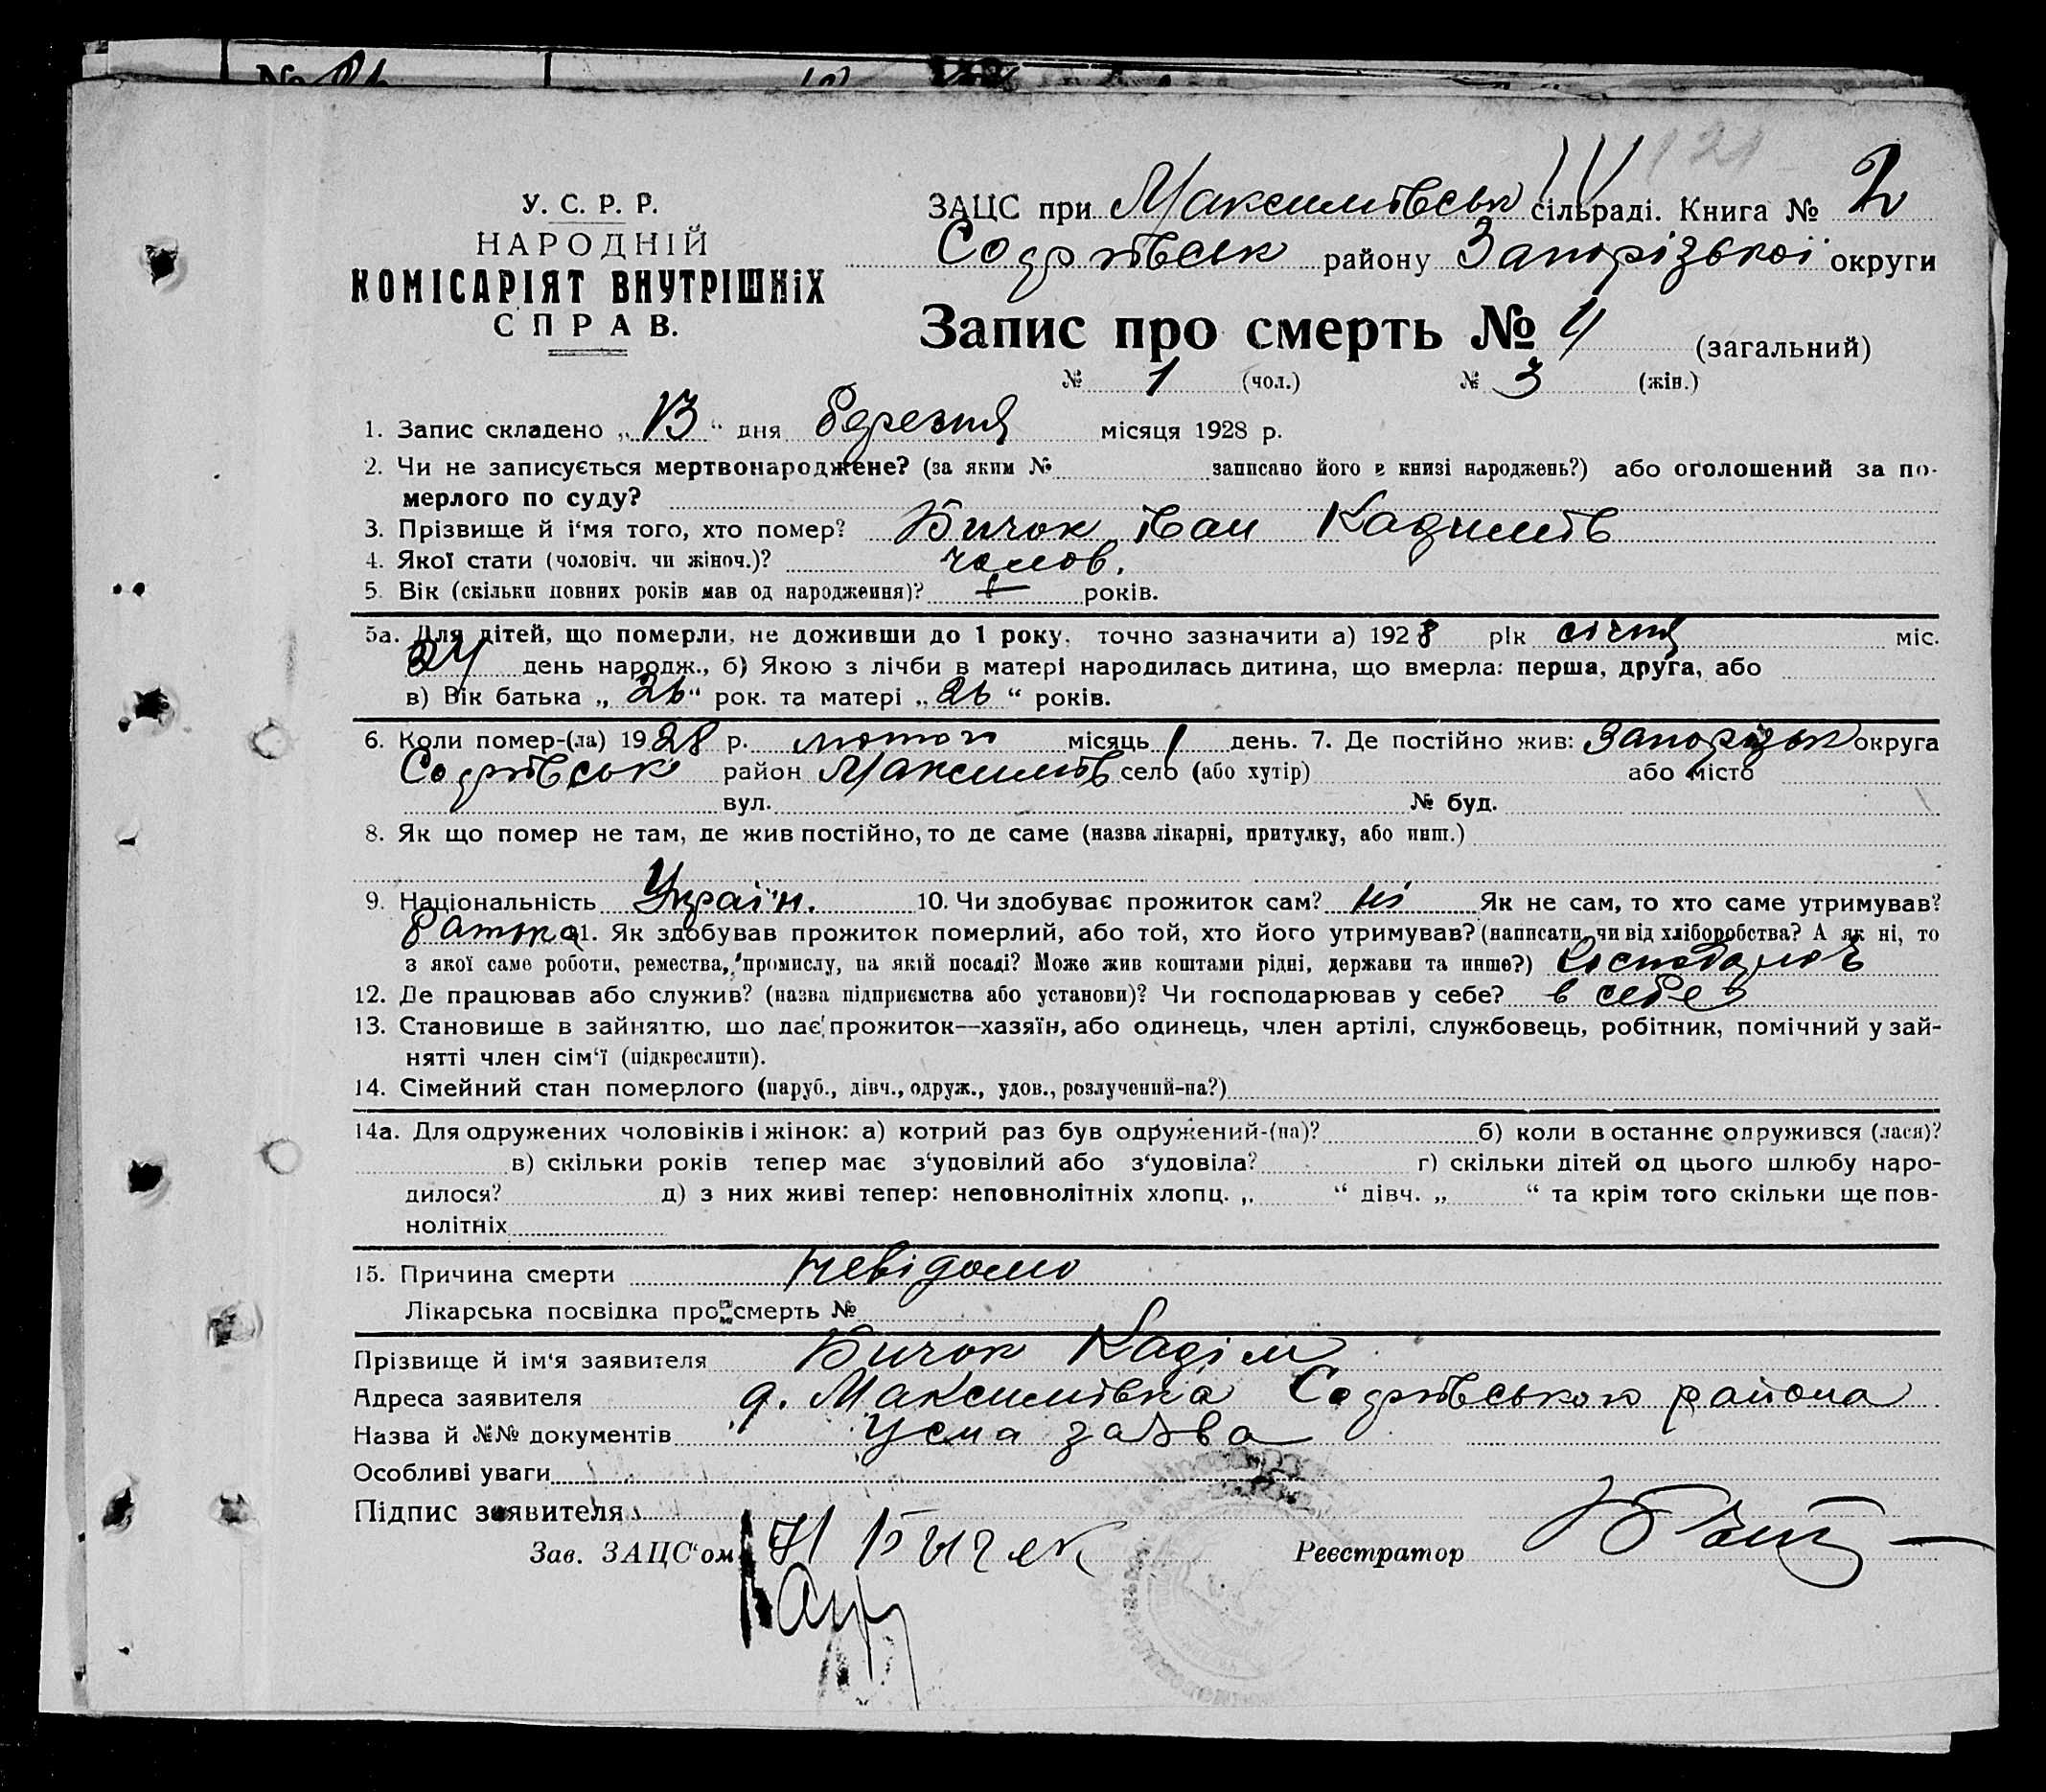 У. С. Р. Р.
НАРОДНІЙ
КОМІСАРІЯТ ВНУТРІШНіХ
СПРАВ.
121
ЗАЦС при Максимівськ сільраді. Книга № 2
Софіївськ району Запорізької округи
Запис про смерть № 4 (загальний)
№ 1 (чол.) № 3 (жін.)
1. Запис складено „13“ дня березня місяця 1928 р.
2. Чи не записується мертвонароджене? (за яким № записано його в книзі народжень?) або оголошений за по-
мерлого по суду?
3. Прізвище й і‘мя того, хто помер? Бичок Іван Кадимів
4. Якої стати (чоловіч. чи жіноч.)? чолов.
5. Вік (скільки повних років мав од народження)? років.
5а. Для дітей, що померли, не доживши до 1 року, точно зазначити а) 1928 рік січня міс.
24 день народж., б) Якою з лічби в матері народилась дитина, що вмерла: перша, друга, або
в) Вік батька „26“ рок. та матері „26“ років.
6. Коли помер-(ла) 1928 р. лютого місяць 1 день. 7. Де постійно жив: Запорізьк округа
Софіївськ район Максимів село (або хутір) або місто
вул. № буд.
8. Як що помер не там, де жив постійно, то де саме (назва лікарні, притулку, або инш.)
9. Національність Україн. 10. Чи здобуває прожиток сам? ні Як не сам, то хто саме утримував?
батько 11. Як здобував прожиток померлий, або той, хто його утримував? (написати, чи від хліборобства? А як ні, то
з якої саме роботи, ремества, промислу, на якій посаді? Може жив коштами рідні, держави та инше?)
12. Де працював або служив? (назва підприємства або установи)? Чи господарював у себе? в себе
13. Становище в зайняттю, що дає прожиток—хазяїн, або одинець, член артілі, службовець, робітник, помічний у зай-
нятті член сім‘ї (підкреслити).
14. Сімейний стан померлого (паруб., дівч., одруж., удов., розлучений-на?)
14а. Для одружених чоловіків і жінок: а) котрий раз був одружений-(на)? б) коли в останнє одружився (лася)?
в) скільки років тепер має з‘удовілий або з‘удовіла? г) скільки дітей од цього шлюбу наро-
дилося? д) з них живі тепер: неповнолітніх хлопц. „ “ дівч. „ “ та крім того скільки ще пов-
нолітніх
15. Причина смерти невідомо
Лікарська посвідка про смерть №
Прізвище й ім‘я заявителя Бичок Кадім
Адреса заявителя д. Максимівка Софіївського района
Назва й №№ документів Усна заява
Особливі уваги
Підпис заявителя
Зав. ЗАЦС‘ом Бычек
Реєстратор